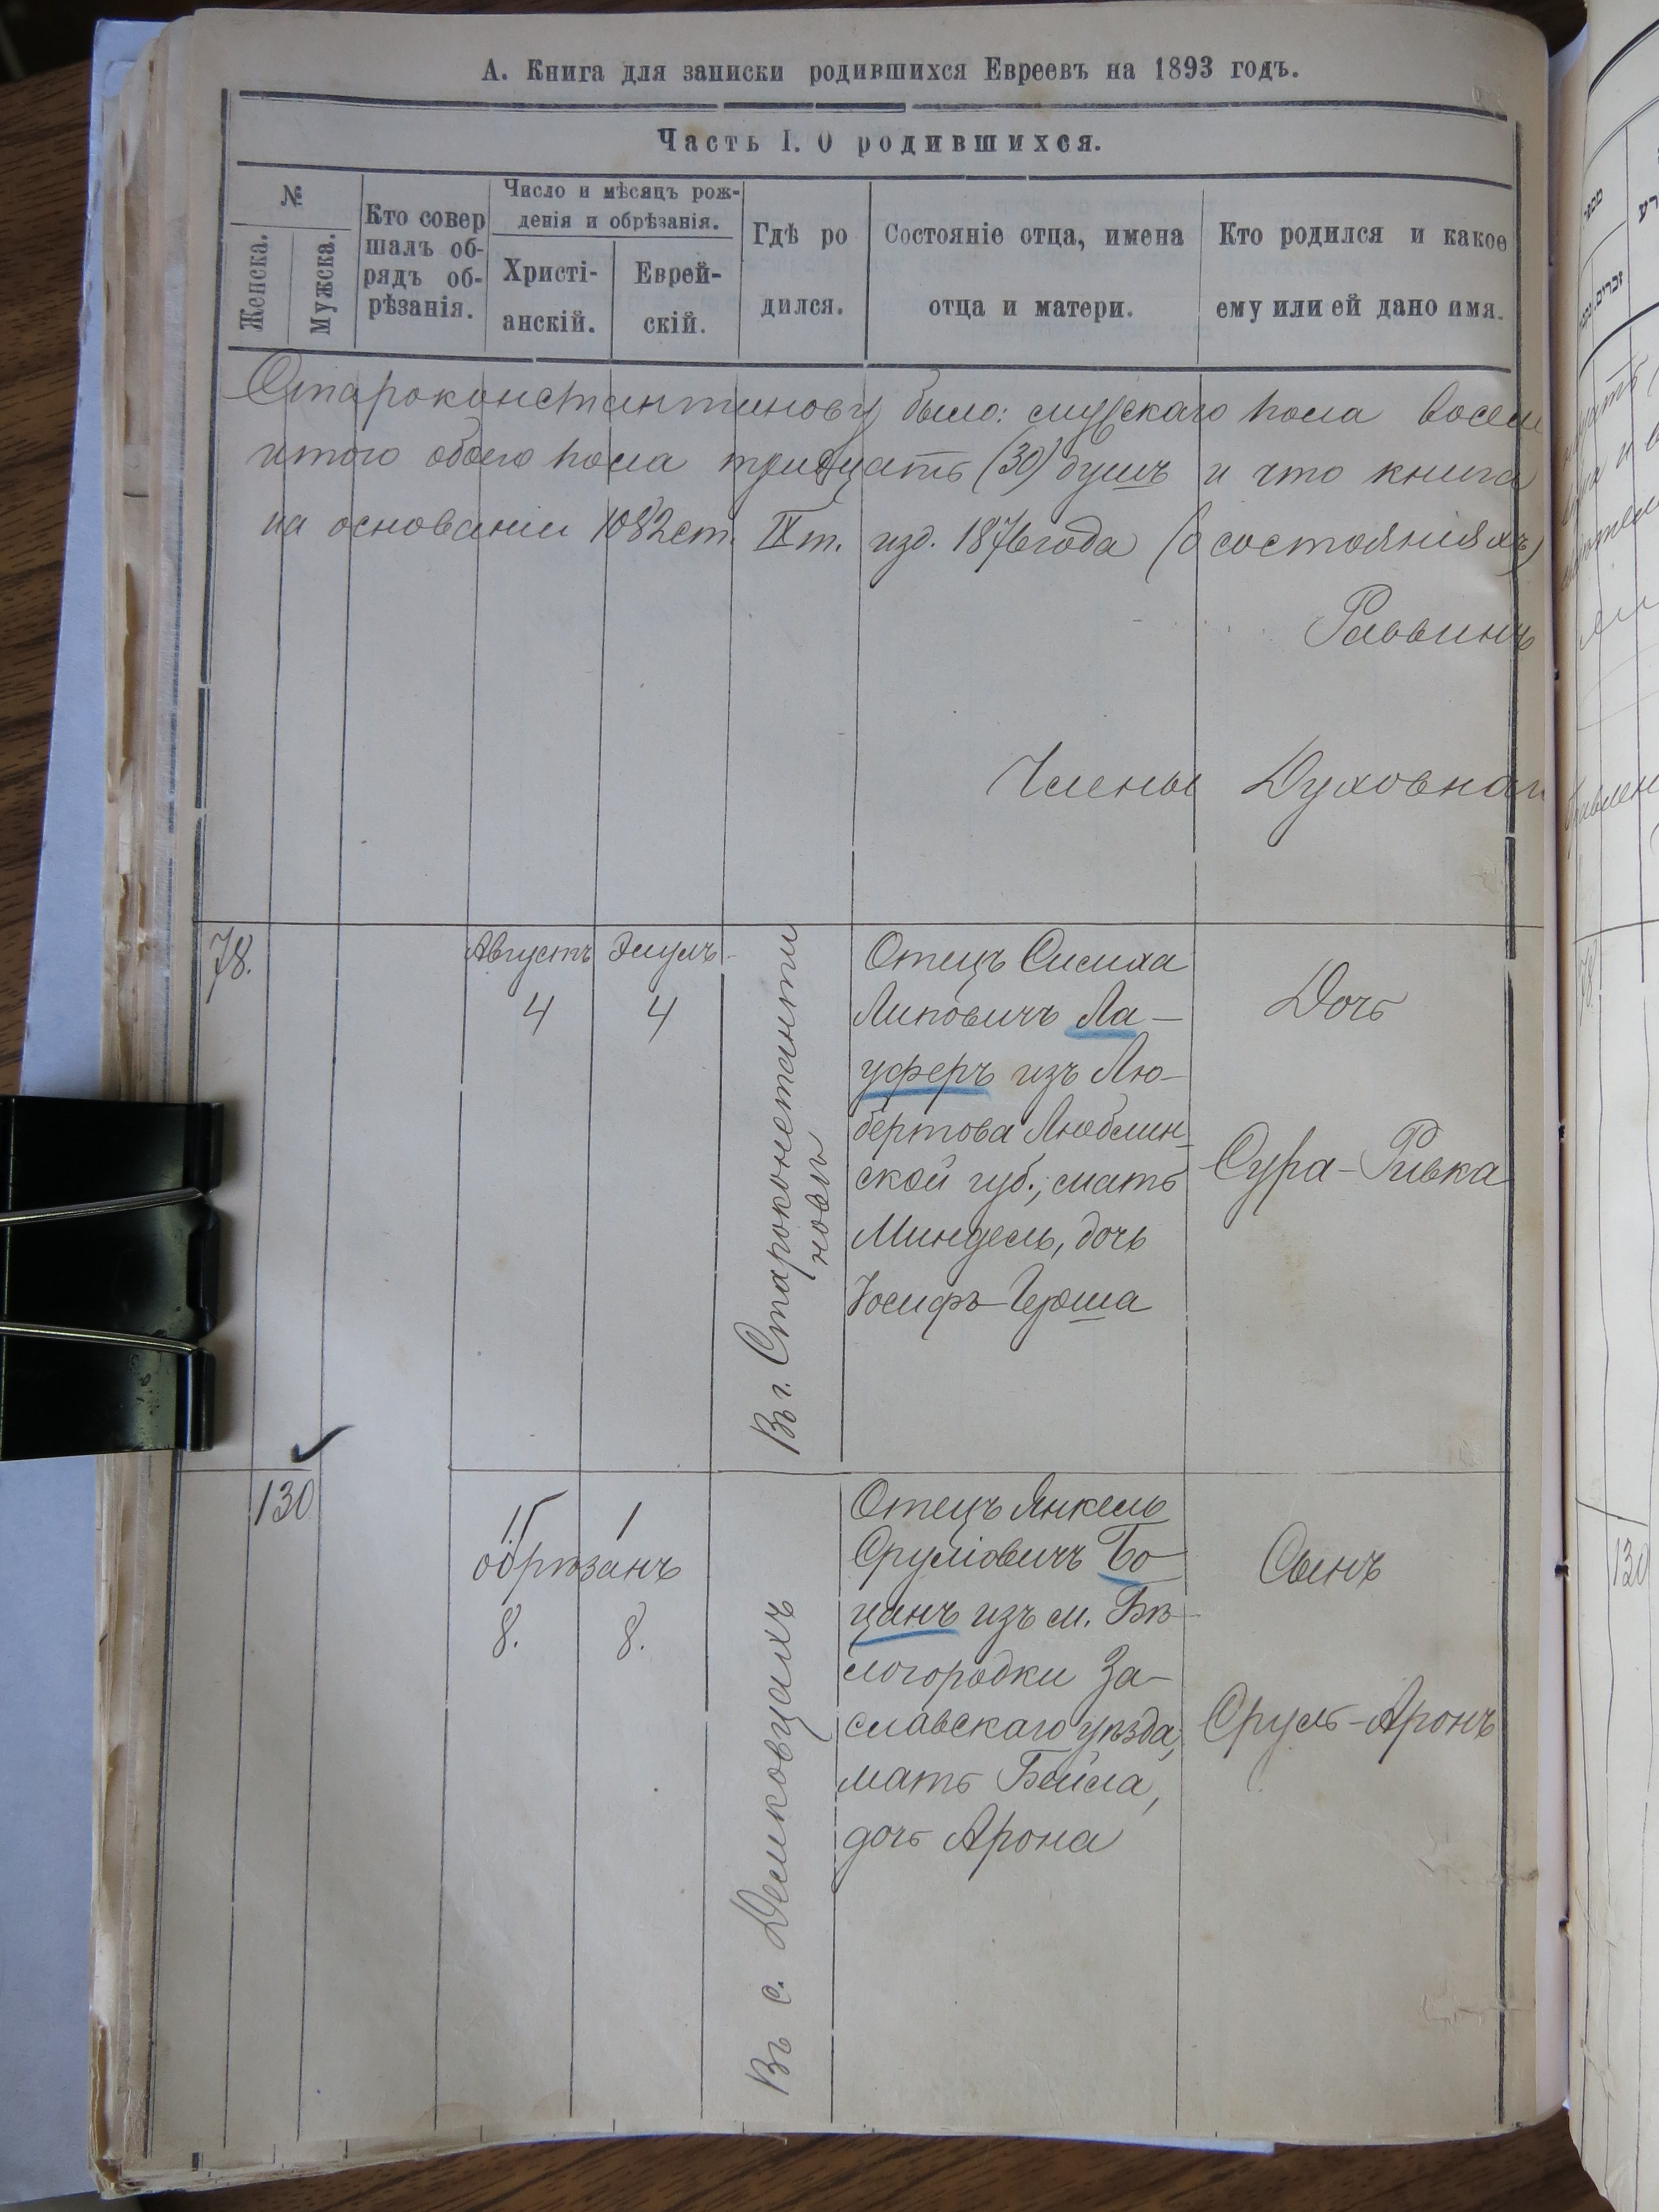 А. Книга для записки родившихся Евреевъ на 1893 годъ.
Часть I. О родившихся.
№
Женска.
Мужска.
Кто совер
шалъ об-
рядъ об-
рѣзанія.
Число и мѣсяцъ рож-
денія и обрѣзанія.
Христі-
анскій.
Еврей-
скій.
Гдѣ ро
дился.
Состояніе отца, имена
отца и матери.
Кто родился и какое
ему или ей дано имя.
Староконстантинову было: мужскаго пола восем
итого обоего пола тридцать (30) душъ и что книга
на основаніи 1082 ст. IX т. изд. 1876 года (о состояніяхъ)
Раввинъ
Члены Духовнаг
78.
Августъ
4
Элулъ
4
Въ г. Староконстанти
новѣ
Отецъ Симха
Липовичъ Ла-
уферъ изъ Лю-
бертова Люблин-
ской губ., мать
Миндель, дочь
Іосифъ-Герша
Дочь
Сура-Ривка
130
1
1
обрѣзанъ
8.
8.
Въ с. Демковцахъ
Отецъ Янкель
Сруліовичъ Бо-
цанъ изъ м. Бѣ-
логородки За-
славскаго уѣзда,
мать Бейла,
дочь Арона
Сынъ
Сруль-Аронъ
78
130